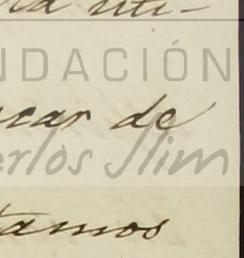 uti-
NDACIÓN
car de
arlos Slim
tamos